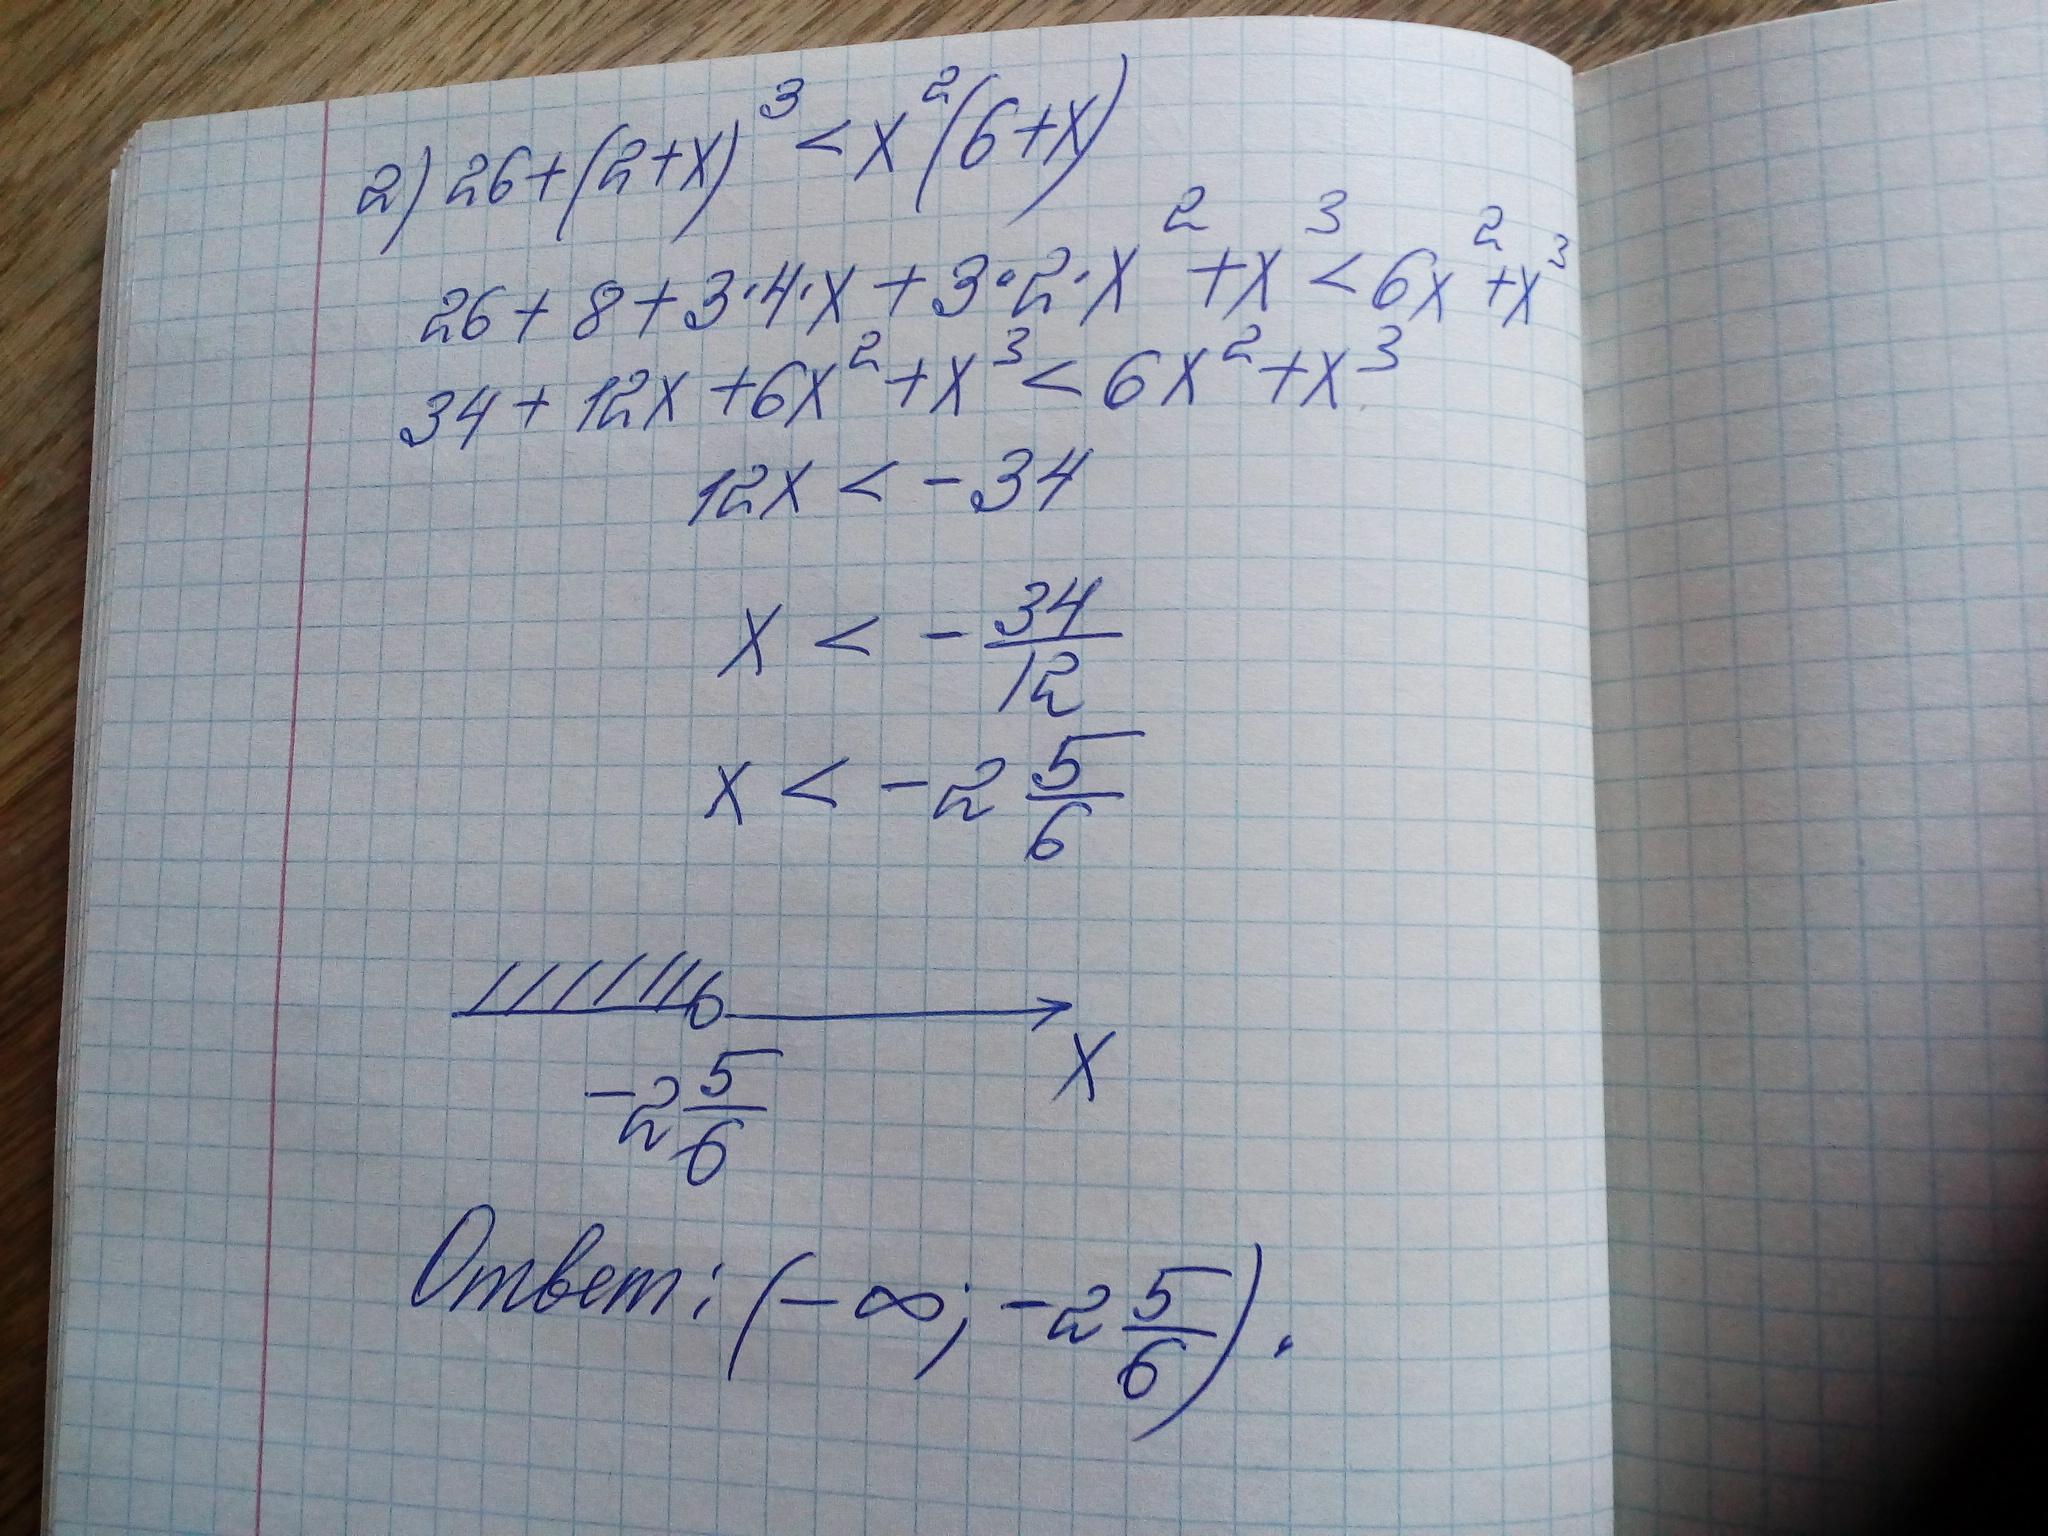 2) 26+(2+x)³<x²(6+x)
26+8+3·4·x+3·2·x²+x³<6x²+x³
34+12x+6x²+x³<6x²+x³
12x<-34
x<-34/12
x<-2 5/6
-2 5/6 x
Ответ: (-∞; -2 5/6).